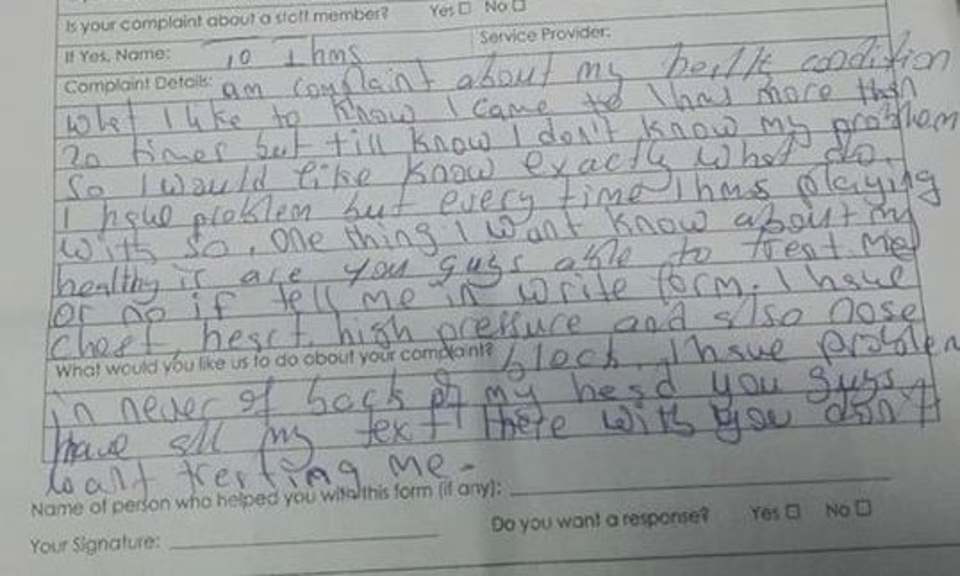 Is your complaint about a staff member? Yes ☐ No ☐
If Yes, Name: To Ihms Service Provider:
Complaint Details: am complaint about my healls condition
whet I like to know I came to Ihms more then
20 times but till know I don't know my problem
So I would like know exactly what do.
I have problem but every time Ihms playing
with so, one thing I want know about my
healthy is are you guys able to treat me
or no if tell me in write form. I have
chest, heart, high pressure and also nose
What would you like us to do about your complaint? block, I have problem
in never of back of my head you guys
have all my text there with you don't
want treating me.
Name of person who helped you with this form (if any):
Do you want a response? Yes ☐ No ☐
Your Signature: